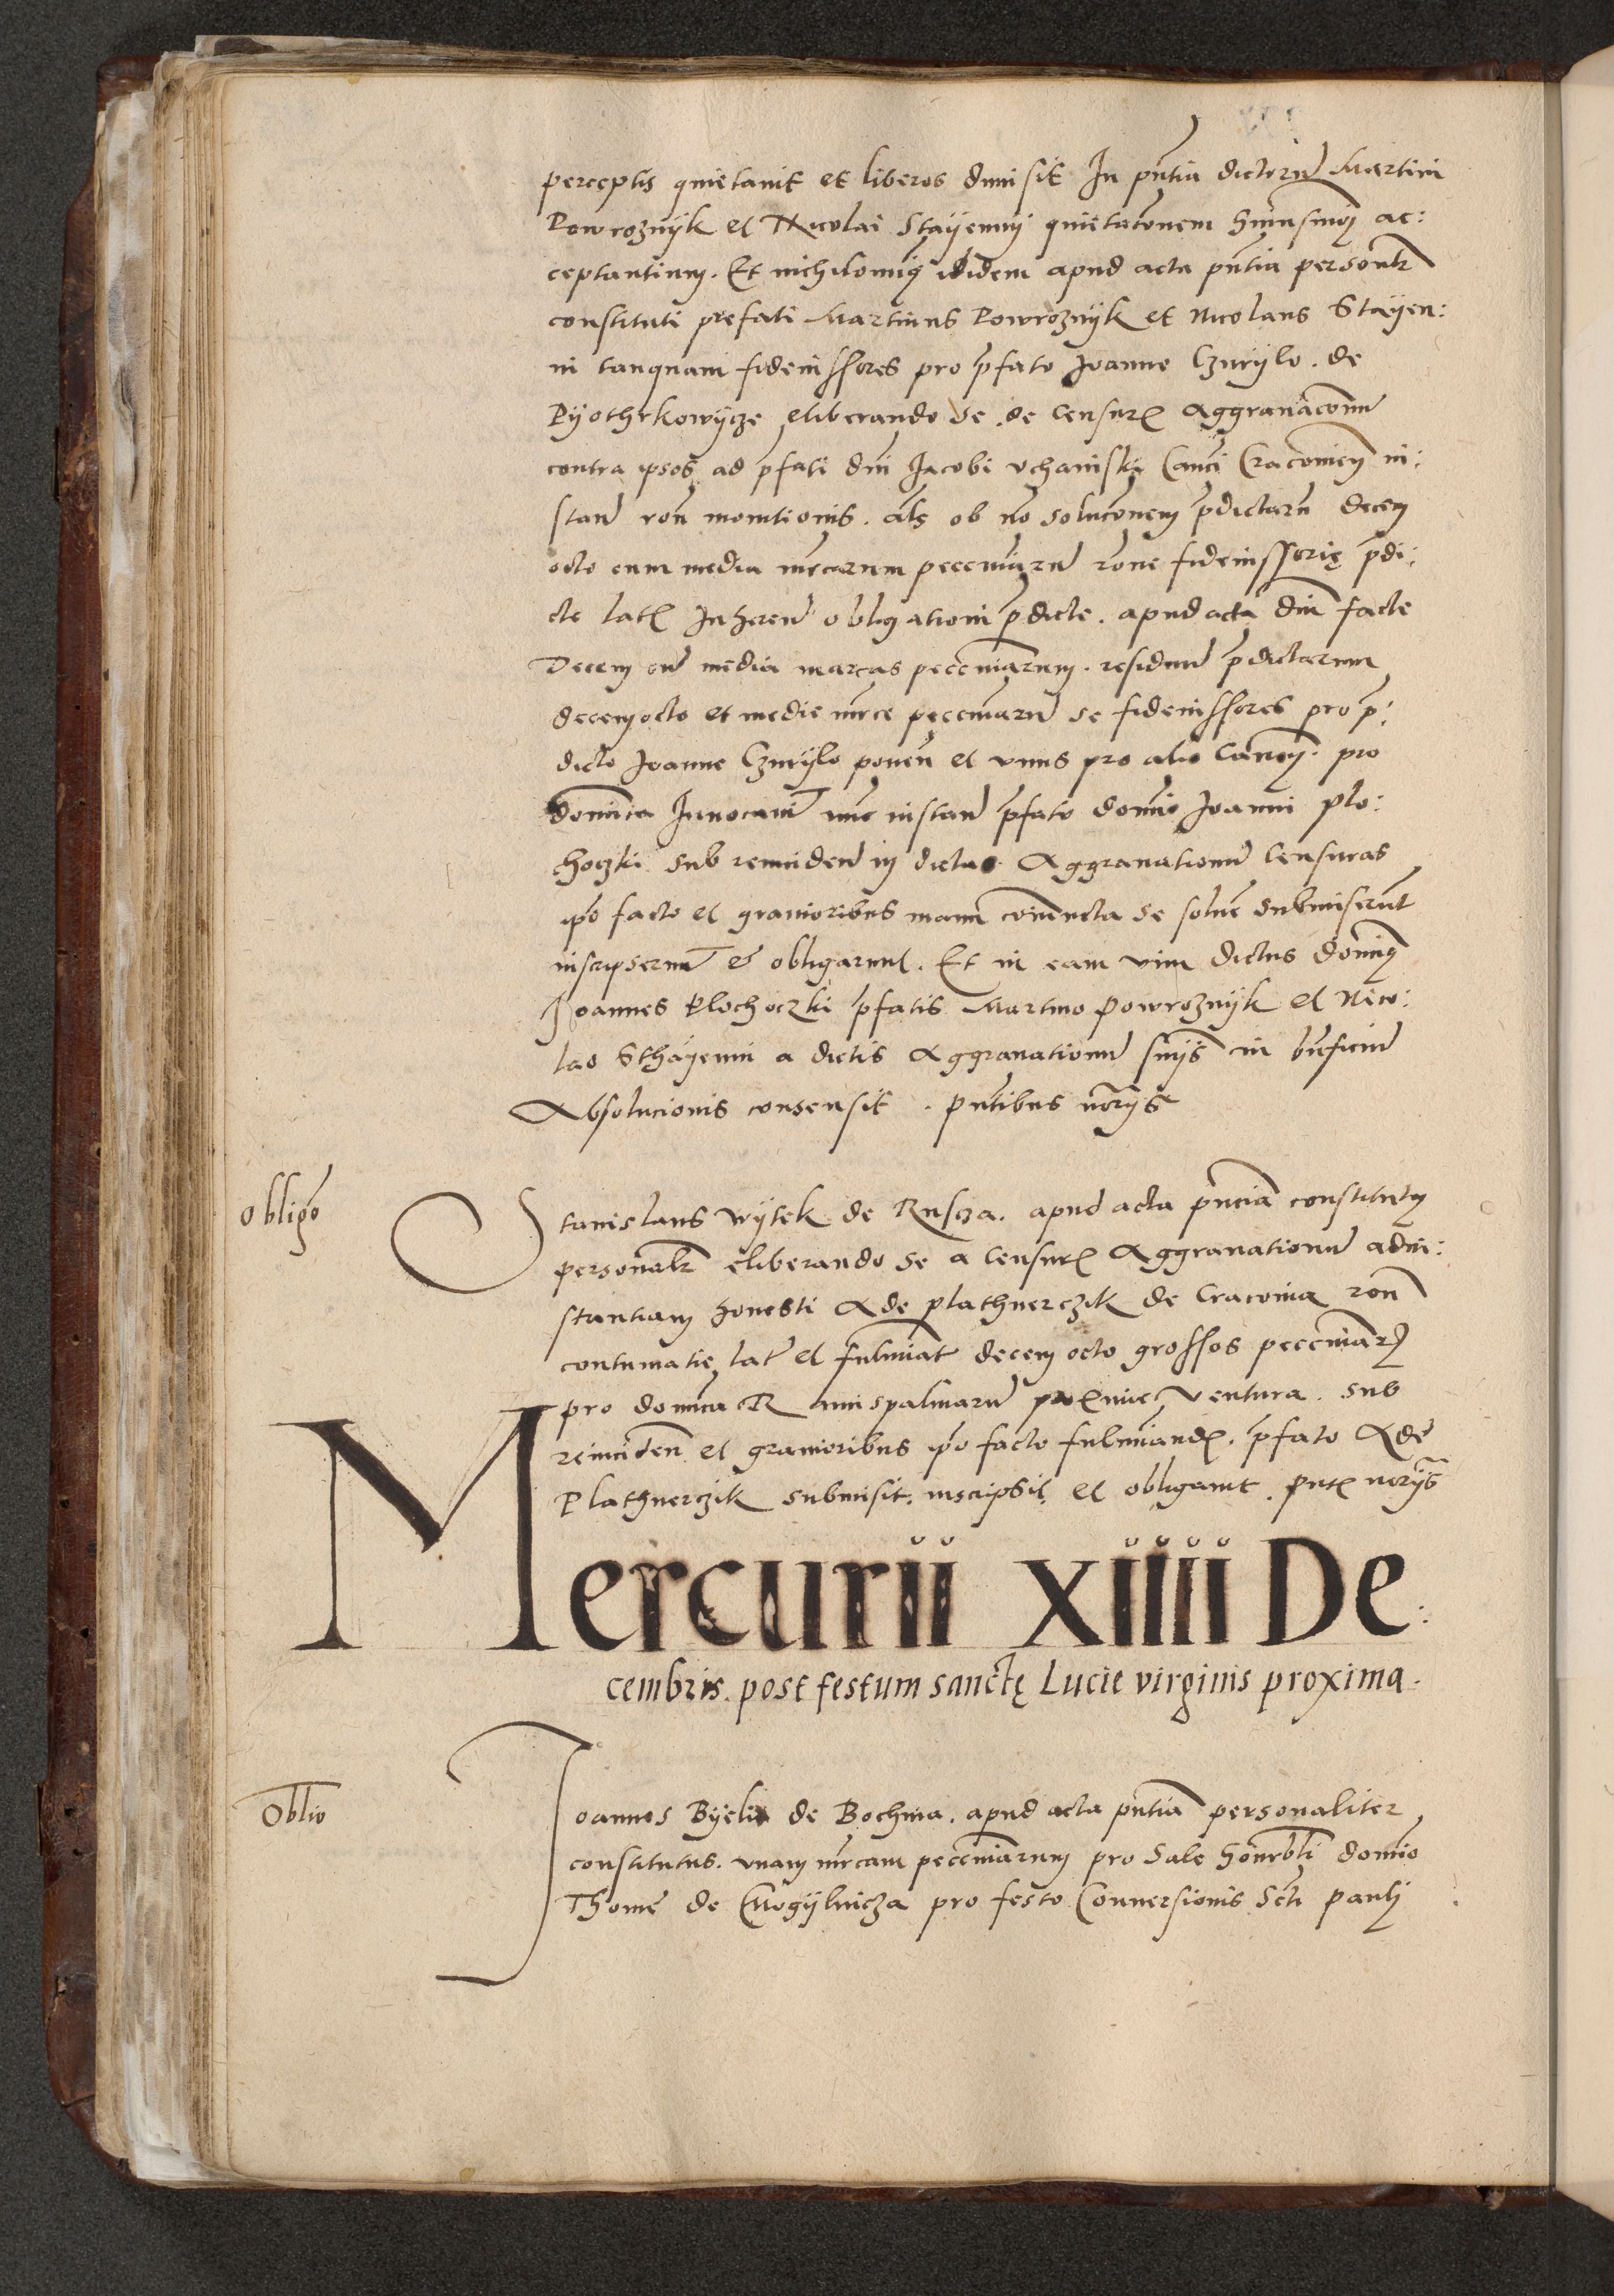 perceptis quietauit et liberos dimisit In pntia dictorū Martini
Powroznÿk et Nicolai Staÿennÿ quietatōnem hmōi ac:
ceptantium. Et nichilominꝯ ibidem apud acta pntia personlr
constituti prefati Martinus Powroznÿk et Nicolaus Staÿen:
ni tanquam fideiussores pro pfato Joanne Czurÿlo. de
Pÿothrkowÿcze eliberando se. de Censur Aggrauaconū
contra ipsos ad pfati dni Jacobi vchanski Canci Cracouien in:
stan ron monitionis. als ob nō solucōnem pdictarū decem
octo cum media mrcarum peccuniarū rone fideiussorię pdi:
cte lat Inheren obligationi pdicte. apud acta dni facte
Decem cū media marcas peccuniarum. residuū pdictarum
decemocto et medie mrce peccuniarū se fideiussores pro p:
dicto Joanne Czurÿlo ponen et vnus pro alio Cauen. pro
dominica Inuocauit nunc instan pfato domino Joanni Plo:
choczki sub reinciden in dictas Aggrauationū Censuras
ipso facto et grauioribus manu coniuncta se soluē submiserunt
inscripserunt et obligarunt. Et in eam vim dictus dominꝯ
Joannes Plochoczki pfatis Martino Powroznÿk et Nico:
lao Sthaÿenni a dictis Aggrauationū snijs in bnficiū
Absolucionis consensit. pntibus norijs
obligo
Stanislaus Wÿtek de Ruscza. apud acta pnciā constitutus
personalr eliberando se a Censur Aggrauationū ad in:
stantiam honesti Ade Plathnerczik de Cracouia ron
contumatie lat et fulminat decem octo grossos peccuniar
pro dominica Ramispalmarū proxime ventura. sub
reinciden et grauioribus ipso facto fulminand. pfato Ade
Plathnerczik submisit. inscripsit. et obligauit. pnt norijs
Mercurii xiiii De:
cembris. post festum sanctę Lucie virginis proxima.
Oblio
Joannes Bÿelia de Bochnia. apud acta pntia personaliter
constitutus. vnam mrcam peccuniarum pro Sale honorbli domino
Thome de Mogÿlnicza pro festo Conuersionis Scti Pauli